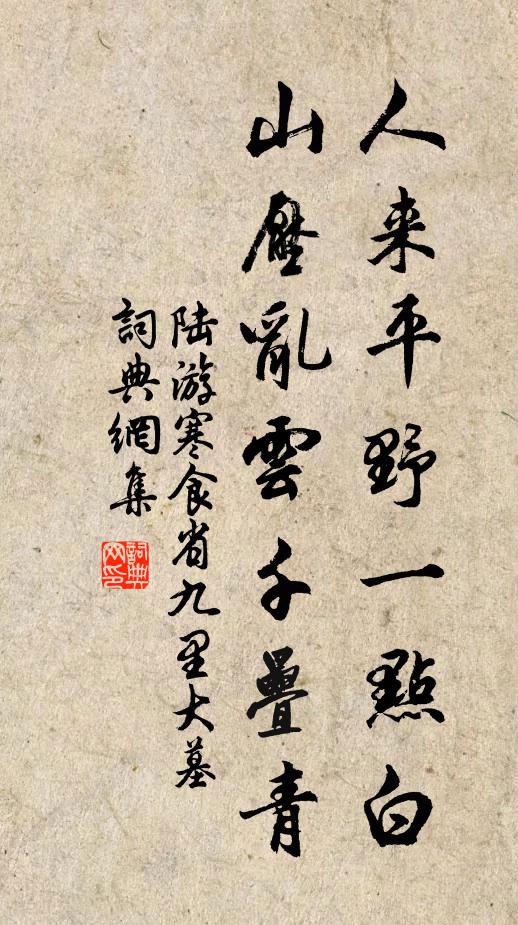 人来平野一點白
山壓亂雲千疊青
陆游寒食省九里大墓
詞典網集
詞典網印